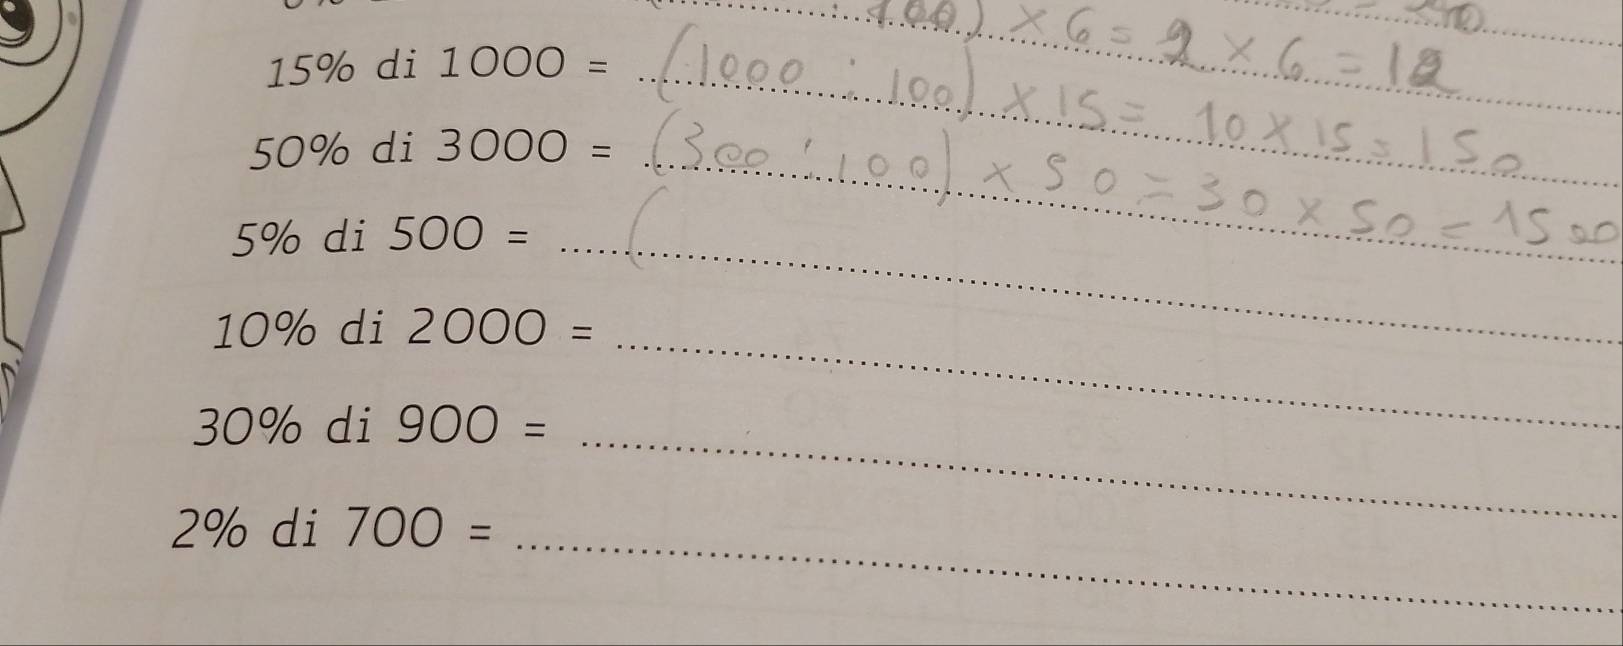 100) × 6 = 2 × 6 = 12
15% di 1000 = (1000 : 100) × 15 = 10 × 15 = 150
50% di 3000 = (300 : 100) × 50 = 30 × 50 = 1500
5% di 500 = (
10% di 2000 =
30% di 900 =
2% di 700 =